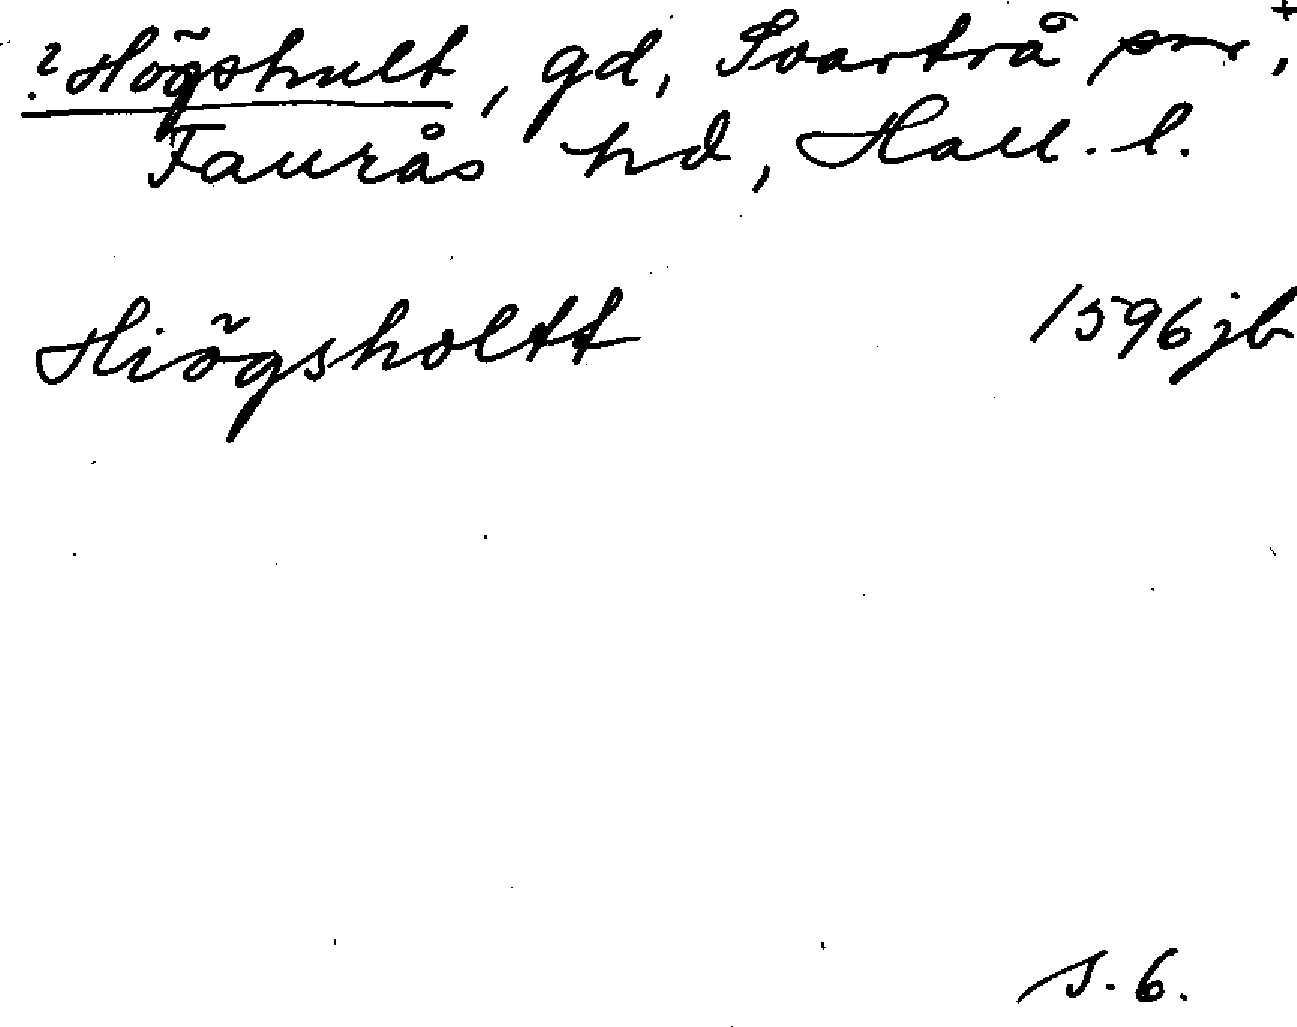 ? Högshult, gd, Svartrå sn, +
Faurås hd, Hall. l.
Hiögsholtt 1596 jb
s. 6.